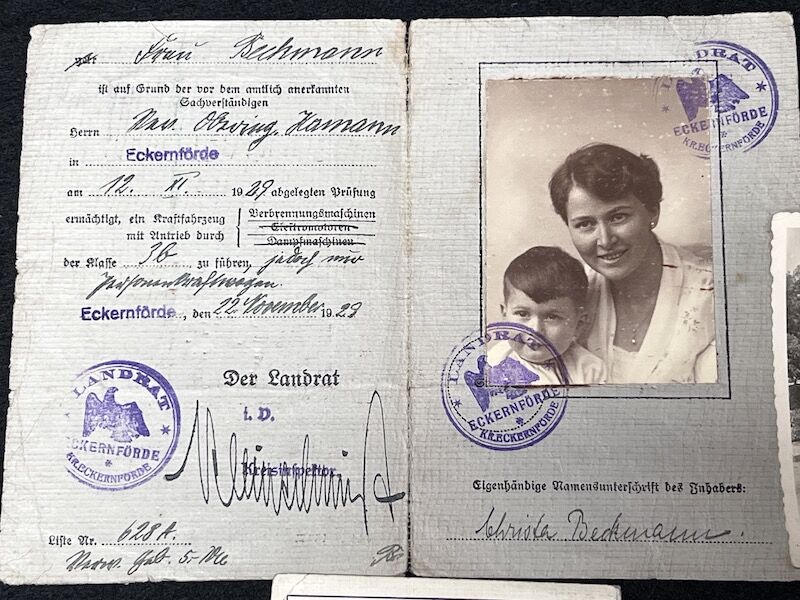 Frau Beckmann
ist auf Grund der vor dem amtlich anerkannten
Sachverständigen
Herrn Obering. Hamann
in Eckernförde
am 12. XI. 1929 abgelegten Prüfung
ermächtigt, ein Kraftfahrzeug
mit Antrieb durch
Verbrennungsmaschinen
Elektromotoren
Dampfmaschinen
der Klasse 3b zu führen, jedoch nur
Personenkraftwagen.
Eckernförde, den 22. November 1929
LANDRAT
ECKERNFÖRDE
KR.ECKERNFÖRDE
Der Landrat
i. V.
Kreisinspektor.
Liste Nr. 628A.
Verw. Geb. 5.- Mk
LANDRAT
ECKERNFÖRDE
KR.ECKERNFÖRDE
LANDRAT
ECKERNFÖRDE
KR.ECKERNFÖRDE
Eigenhändige Namensunterschrift des Inhabers:
Christa Beckmann.